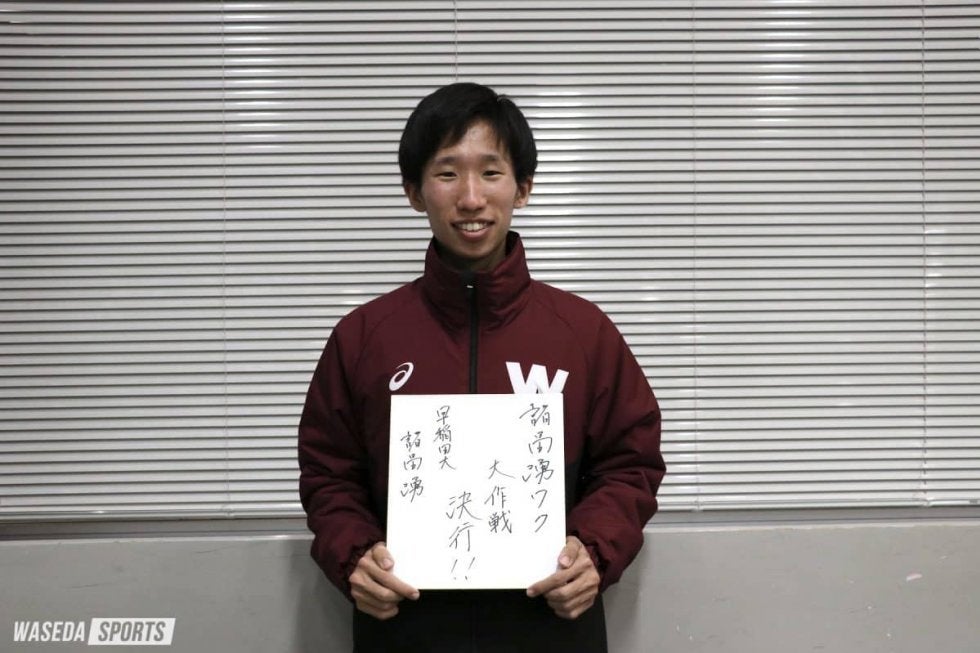 諸冨湧ワク
大作戦
決行!!
早稲田大
諸冨湧
W
WASEDA SPORTS